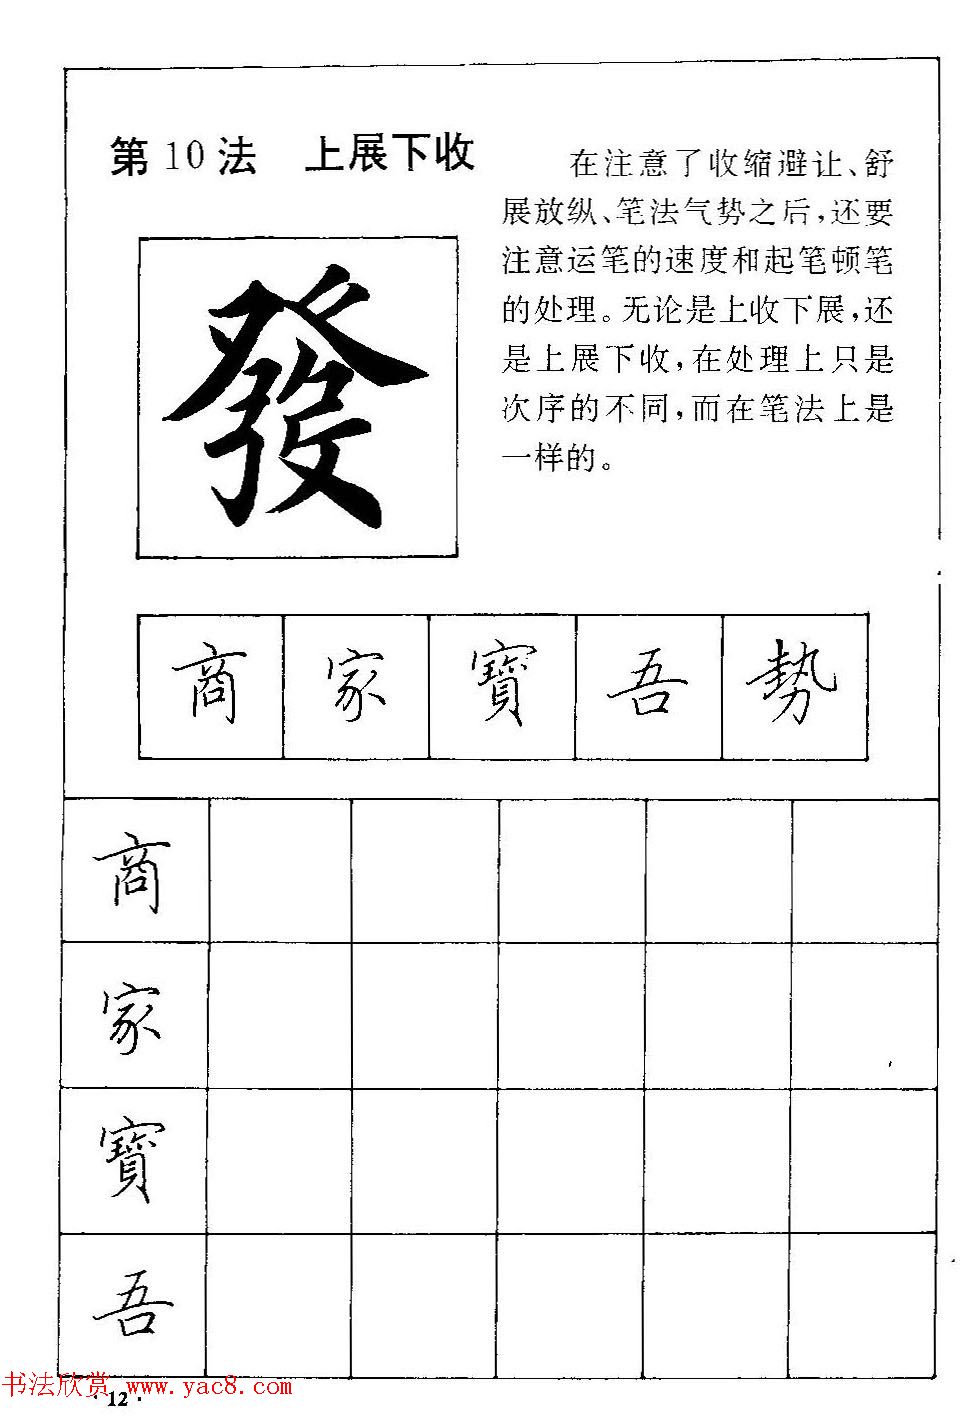 第10法 上展下收
在注意了收缩避让、舒
展放纵、笔法气势之后,还要
注意运笔的速度和起笔顿笔
的处理。无论是上收下展,还
是上展下收,在处理上只是
次序的不同,而在笔法上是
一样的。
發
商 家 寶 吾 勢
商
家
寶
吾
书法欣赏 www.yac8.com
·12·